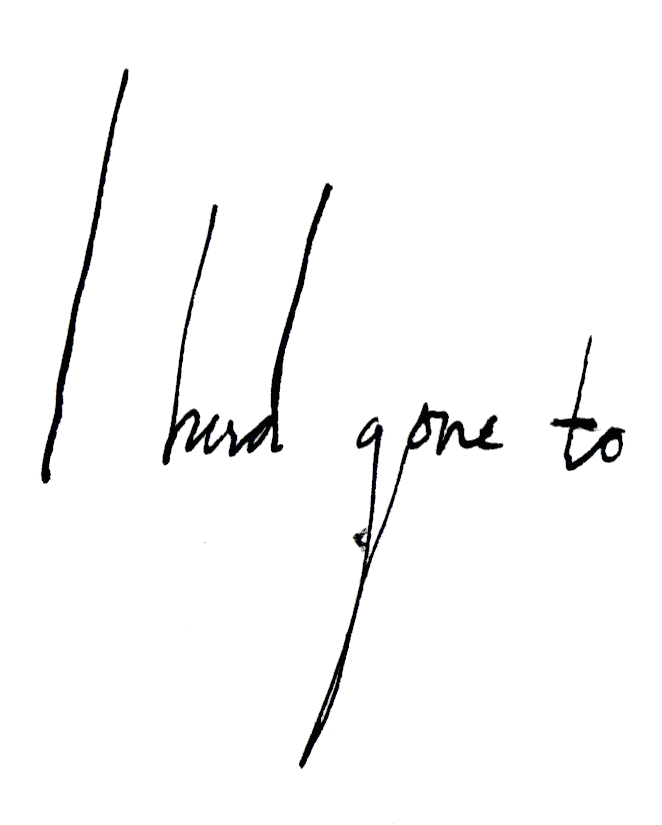 I had gone to